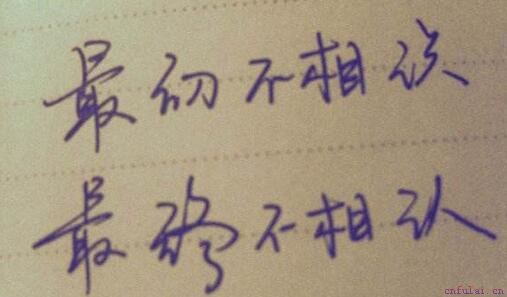 最初不相识
最终不相认
cnfulai.cn